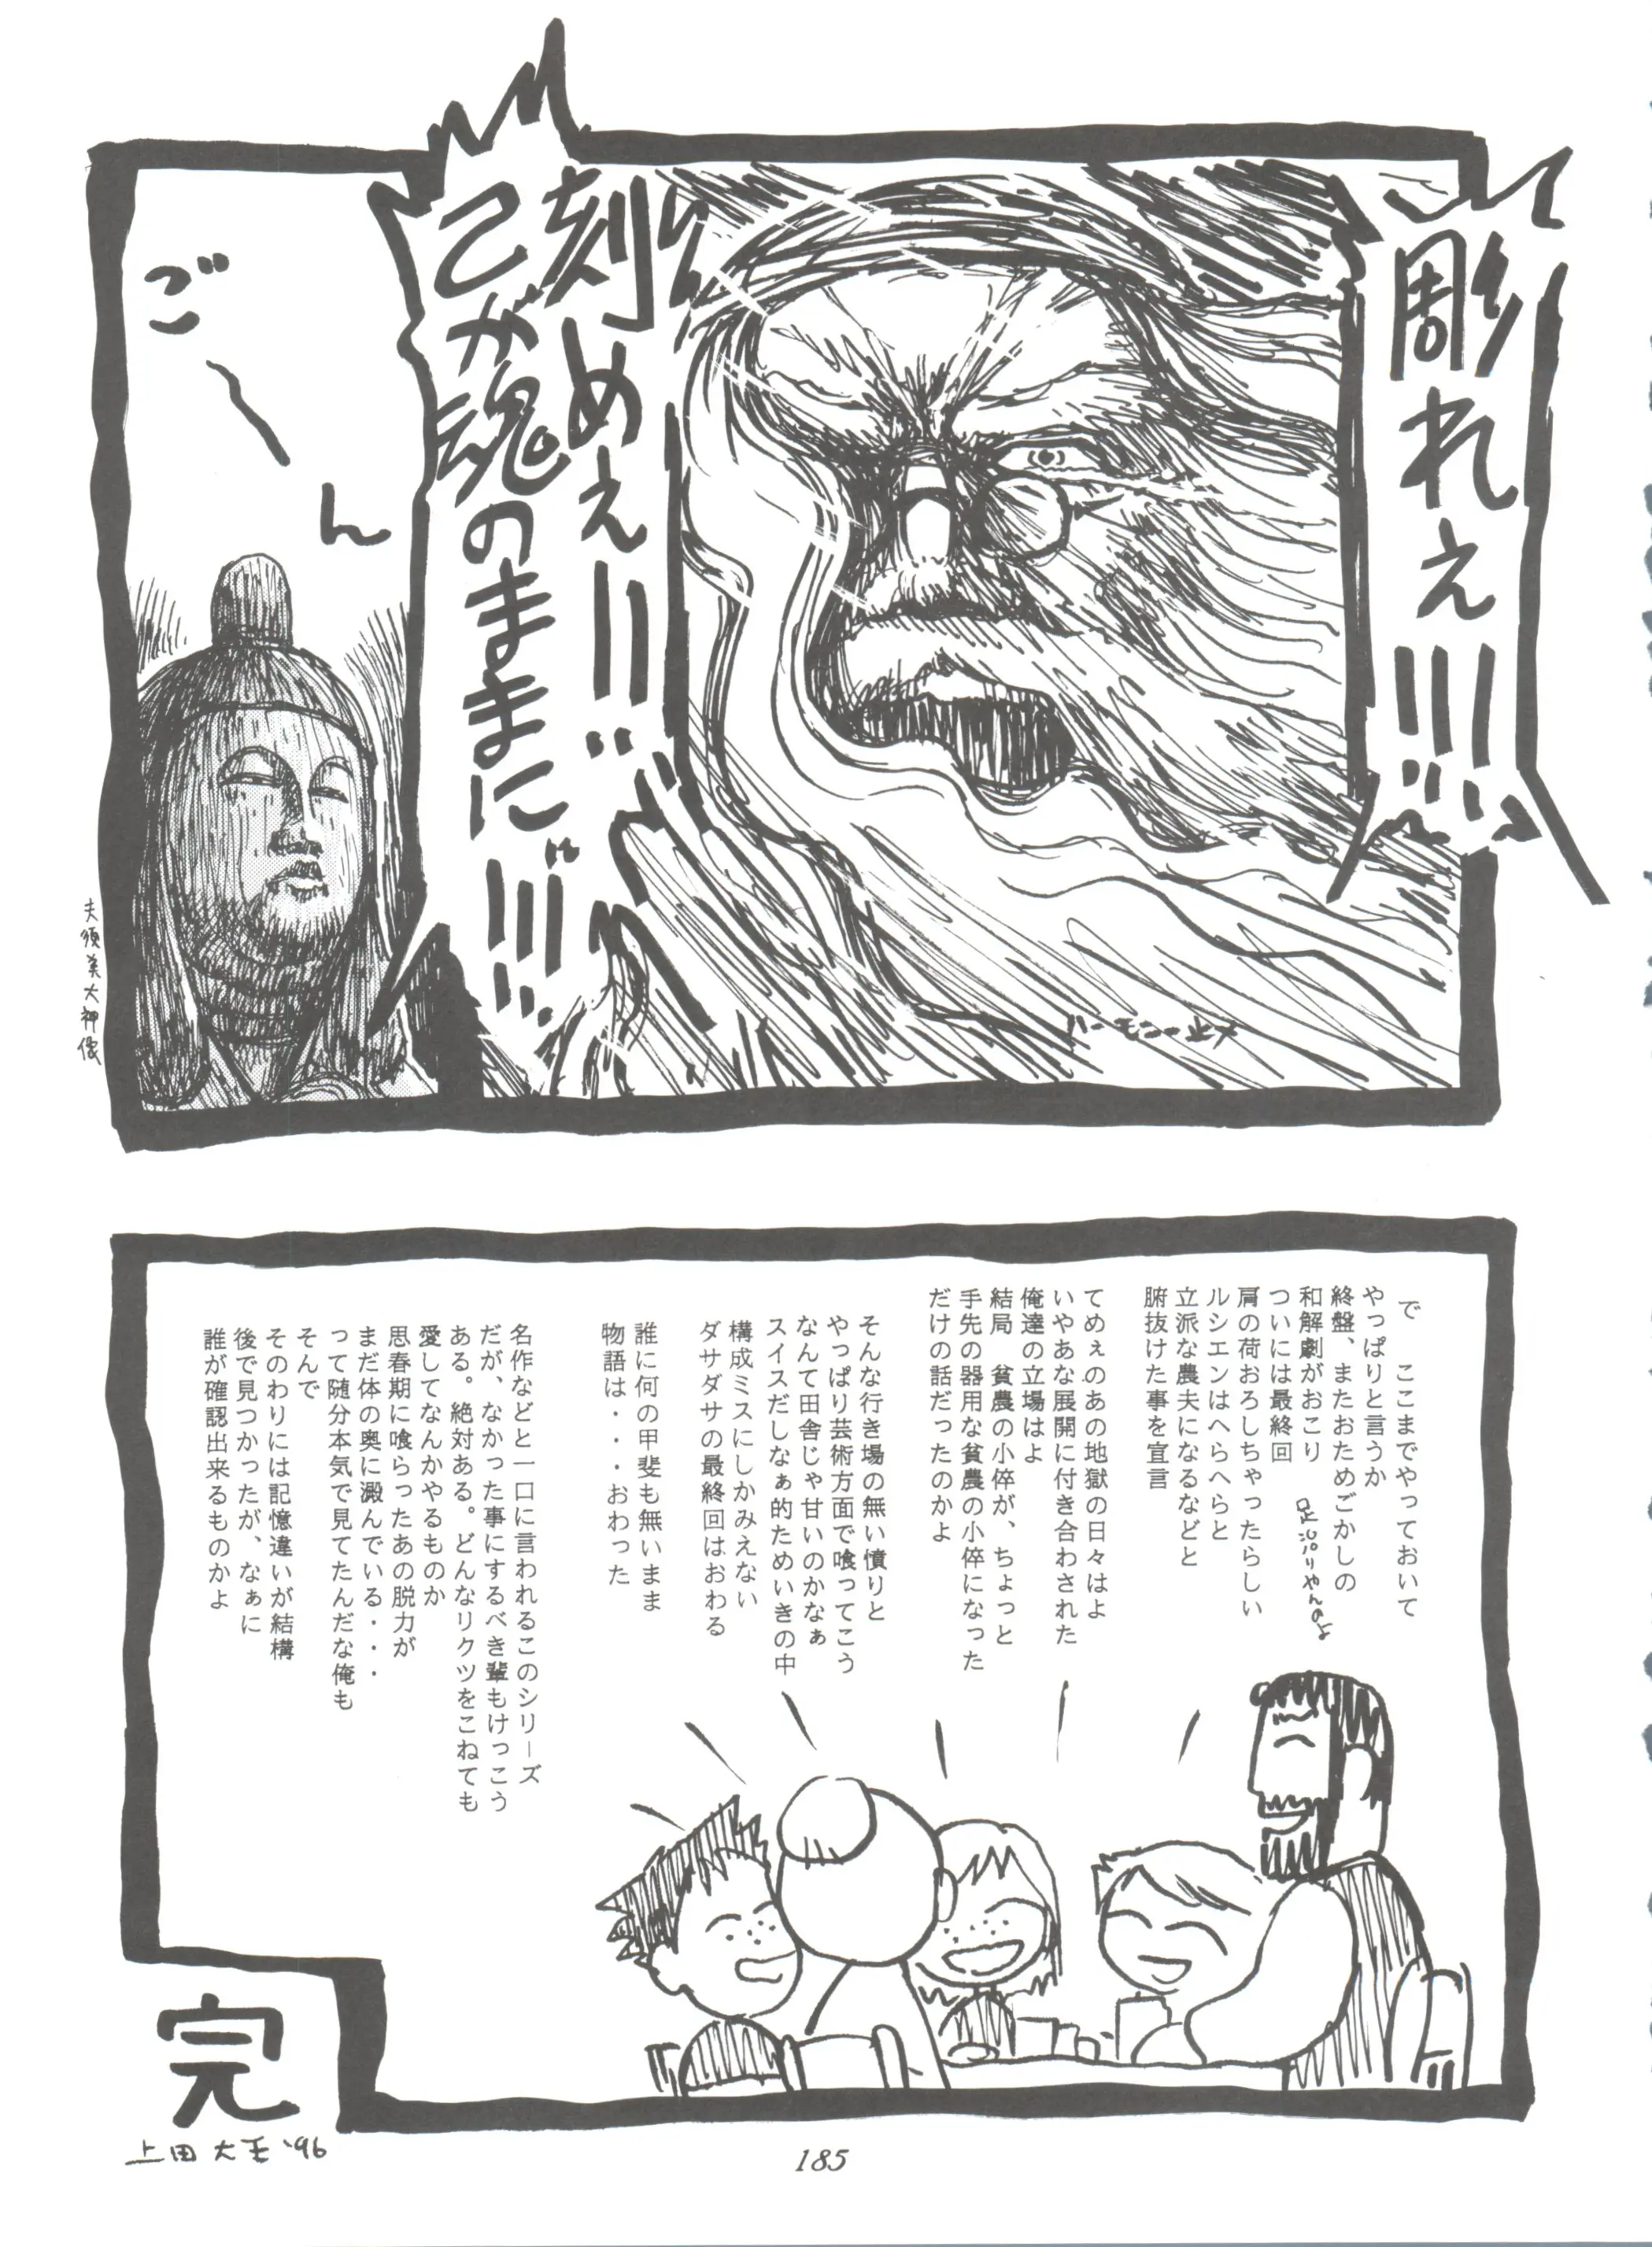 彫れぇ!!!
刻めぇ!!
己が魂のままに!!!
ごーん
ハーモニー止メ
夫須美大神像
で　ここまでやっておいて
やっぱりと言うか
終盤、またおためごかしの
和解劇がおこり
ついには最終回
肩の荷おろしちゃったらしい
ルシエンはへらへらと
立派な農夫になるなどと
腑抜けた事を宣言
てめぇのあの地獄の日々はよ
いやあな展開に付き合わされた
俺達の立場はよ
結局　貧農の小倅が、ちょっと
手先の器用な貧農の小倅になった
だけの話だったのかよ
そんな行き場の無い憤りと
やっぱり芸術方面で喰ってこう
なんて田舎じゃ甘いのかなぁ
スイスだしなぁ的ためいきの中
構成ミスにしかみえない
ダサダサの最終回はおわる
誰に何の甲斐も無いまま
物語は・・・おわった
名作などと一口に言われるこのシリーズ
だが、なかった事にするべき輩もけっこう
ある。絶対ある。どんなリクツをこねても
愛してなんかやるものか
思春期に喰らったあの脱力が
まだ体の奥に澱んでいる・・・
って随分本気で見てたんだな俺も
そんで
そのわりには記憶違いが結構
後で見つかったが、なぁに
誰が確認出来るものかよ
完
上田大王'96
185